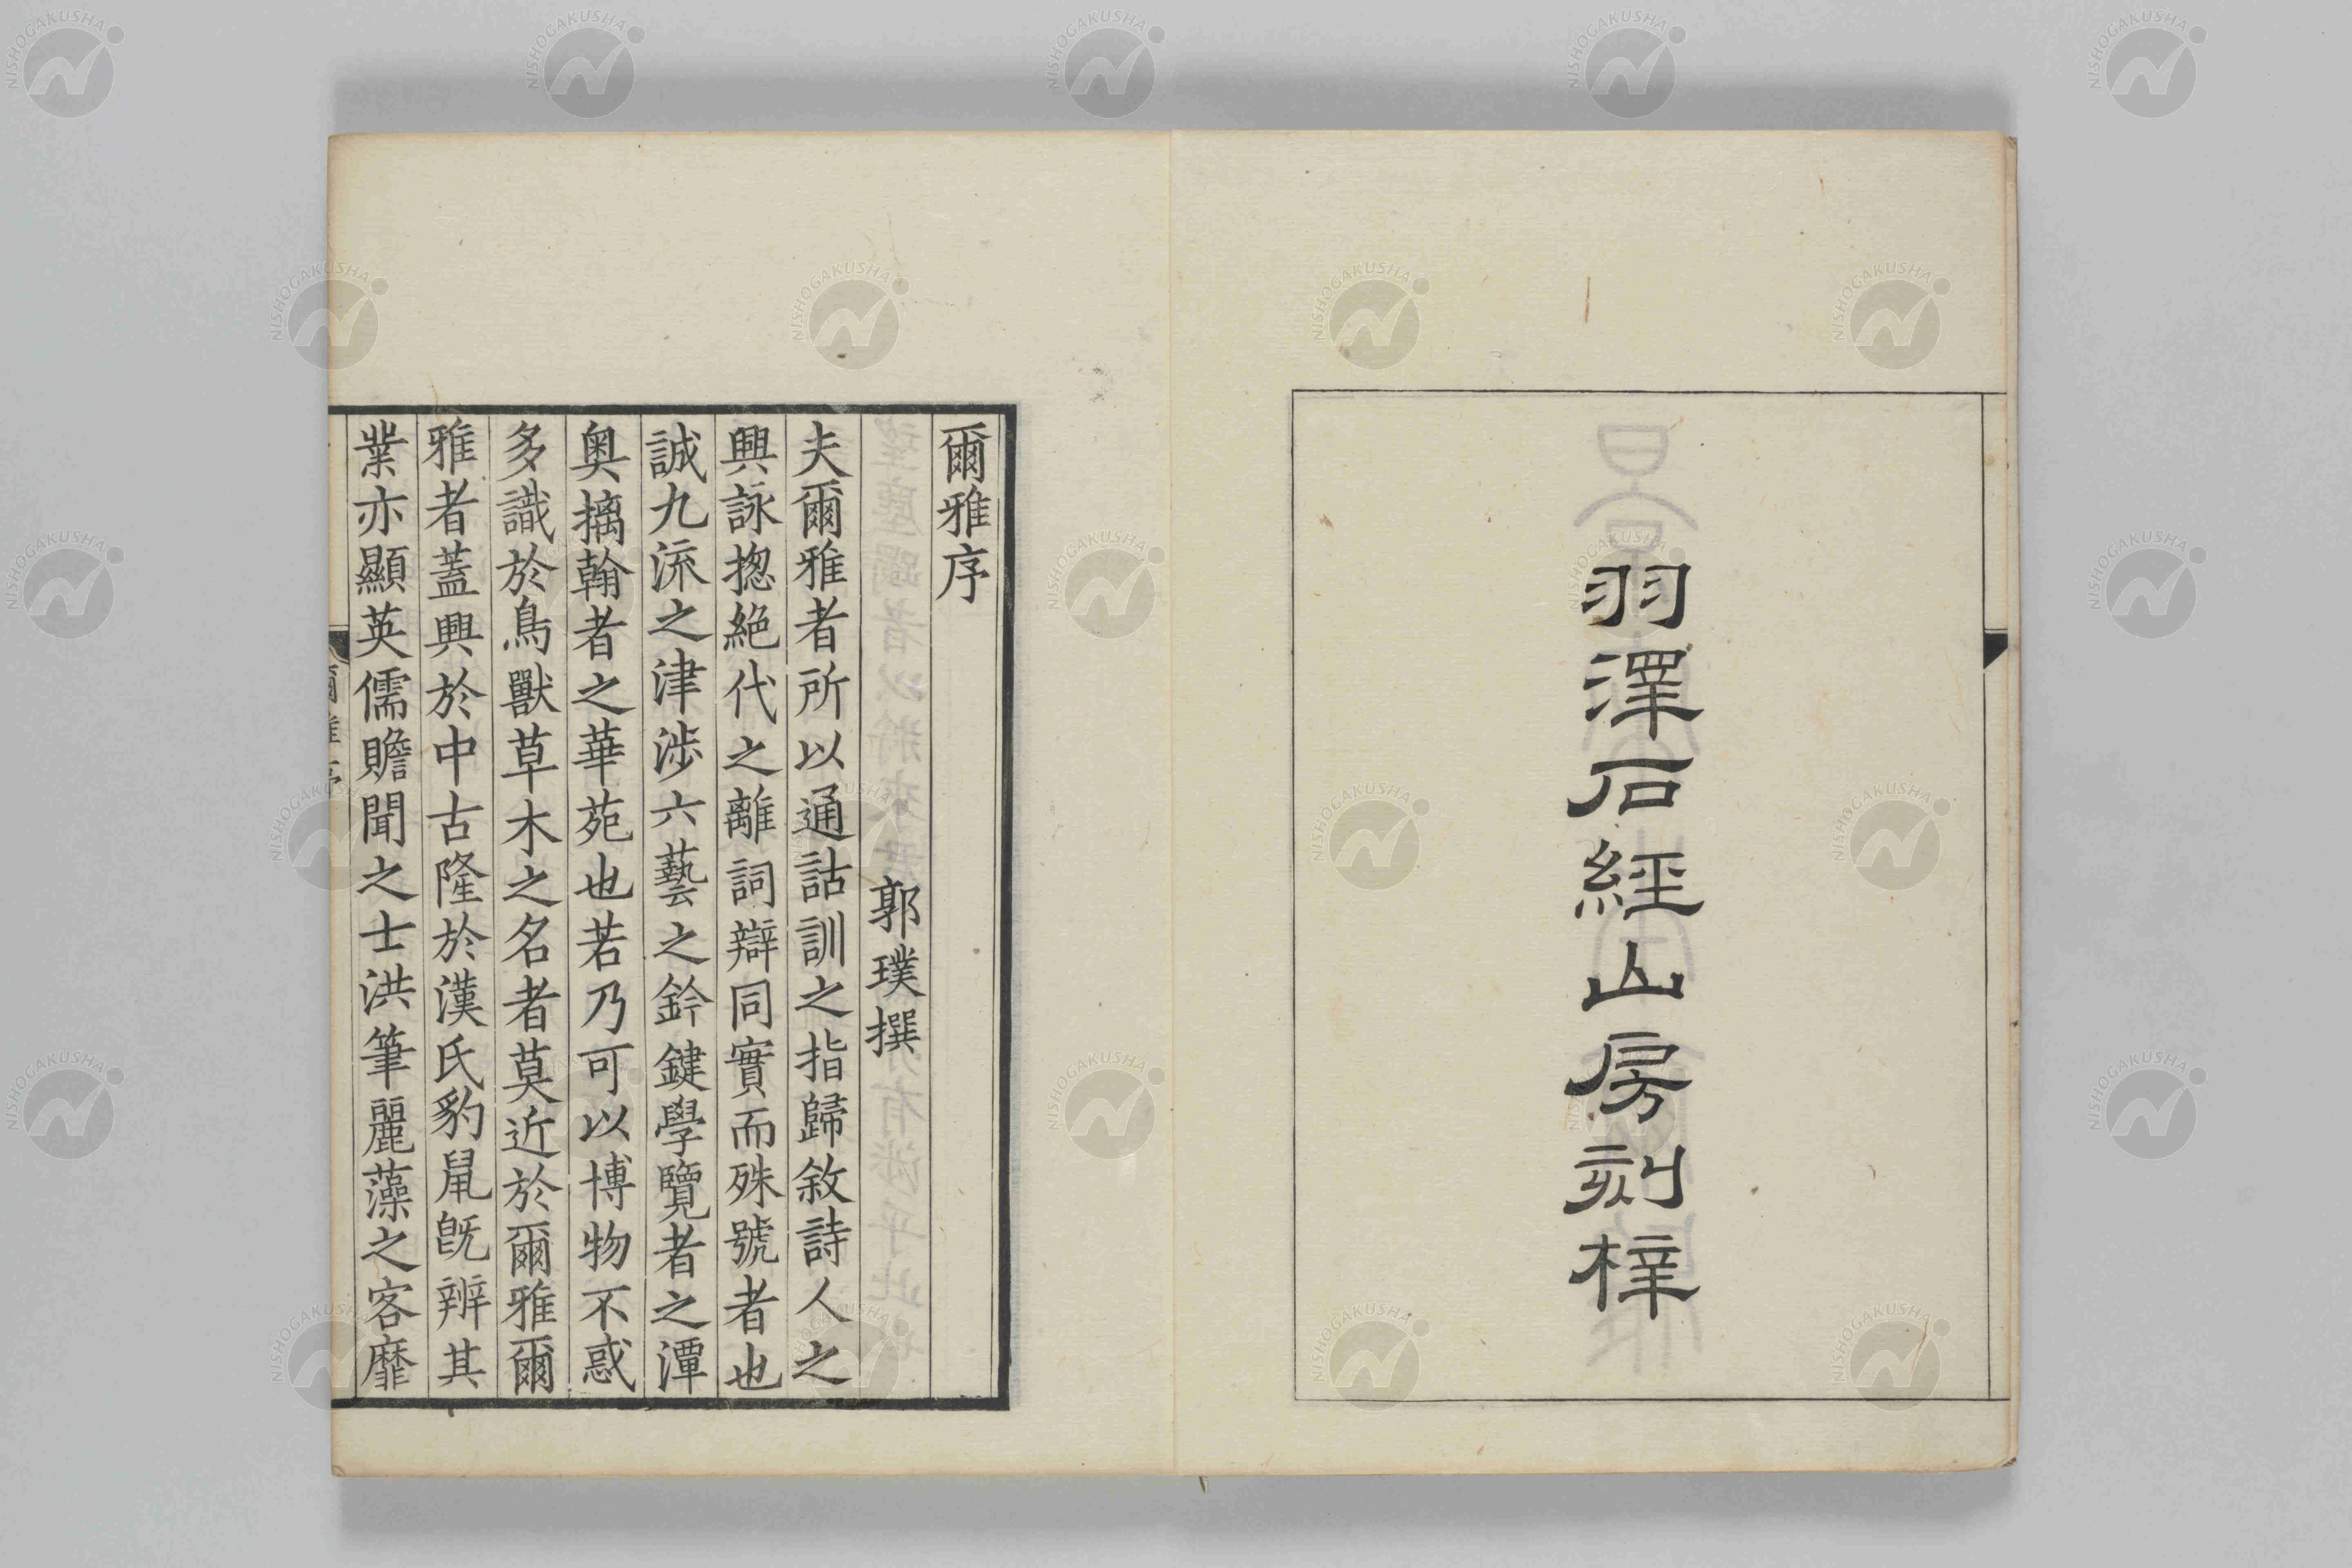 羽澤石經山房刻梓
爾雅序
郭璞撰
夫爾雅者所以通詁訓之指歸敘詩人之
興詠揔絕代之離詞辯同實而殊號者也
誠九流之津涉六藝之鈐鍵學覽者之潭
奧摛翰者之華苑也若乃可以博物不惑
多識於鳥獸草木之名者莫近於爾雅爾
雅者蓋興於中古隆於漢氏豹鼠旣辨其
業亦顯英儒贍聞之士洪筆麗藻之客靡
NISHOGAKUSHA